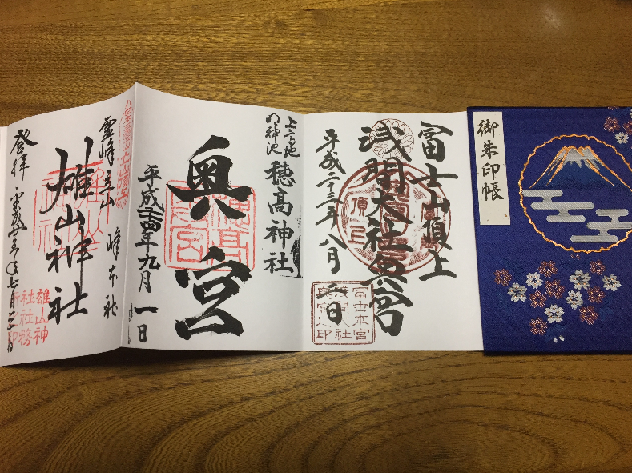 御朱印帳
富士山頂上
浅間大社奥宮
平成二十三年八月
一日
上高地
明神池
穂高神社
奥宮
平成二十四年九月一日
霊峰立山
峰本社
雄山神社
登拝